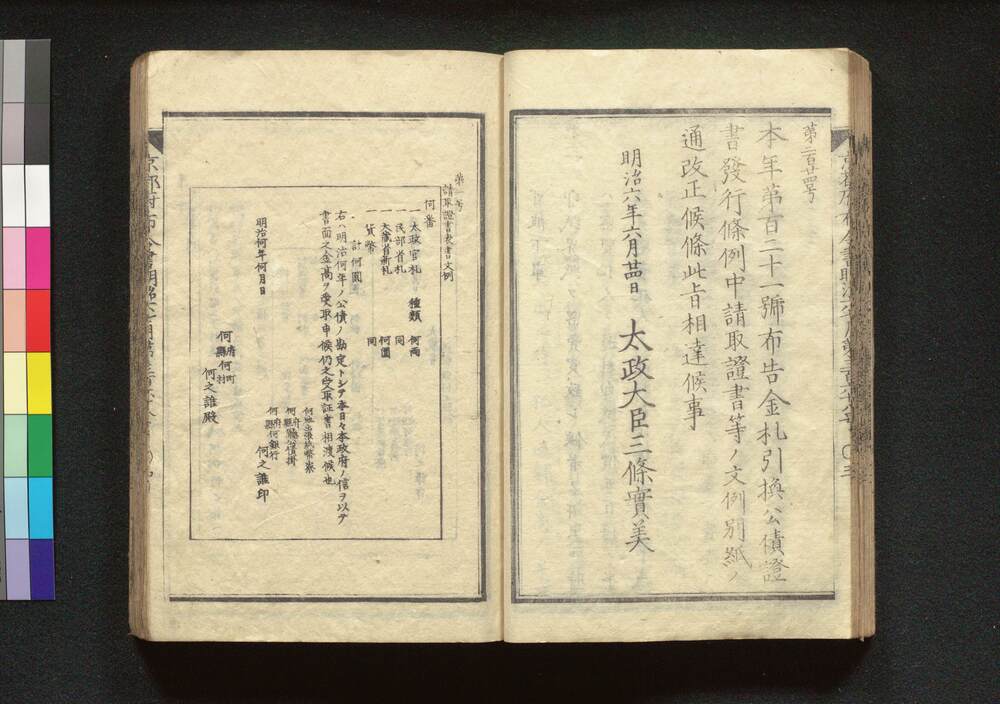 第二百廿四号
本年第百二十一號布告金札引換公債證
書發行條例中請取證書等ノ文例別紙ノ
通改正候條此旨相達候事
明治六年六月廿四日
太政大臣三條實美
請取證書表書文例
何番
一 太政官札 種類 何両
一 民部省札 同
一 大蔵省新札 何圓
一 貨幣 同
計何圓
右ハ明治何年ノ公債ノ勘定トシテ本日々本政府ノ信ヲ以テ
書面之金高ヲ受取申候仍之受取証書相渡候也
明治何年何月日
何地出張紙幣寮
何府縣公債掛
何府縣何銀行
何之誰印
何府縣何町村
何之誰殿